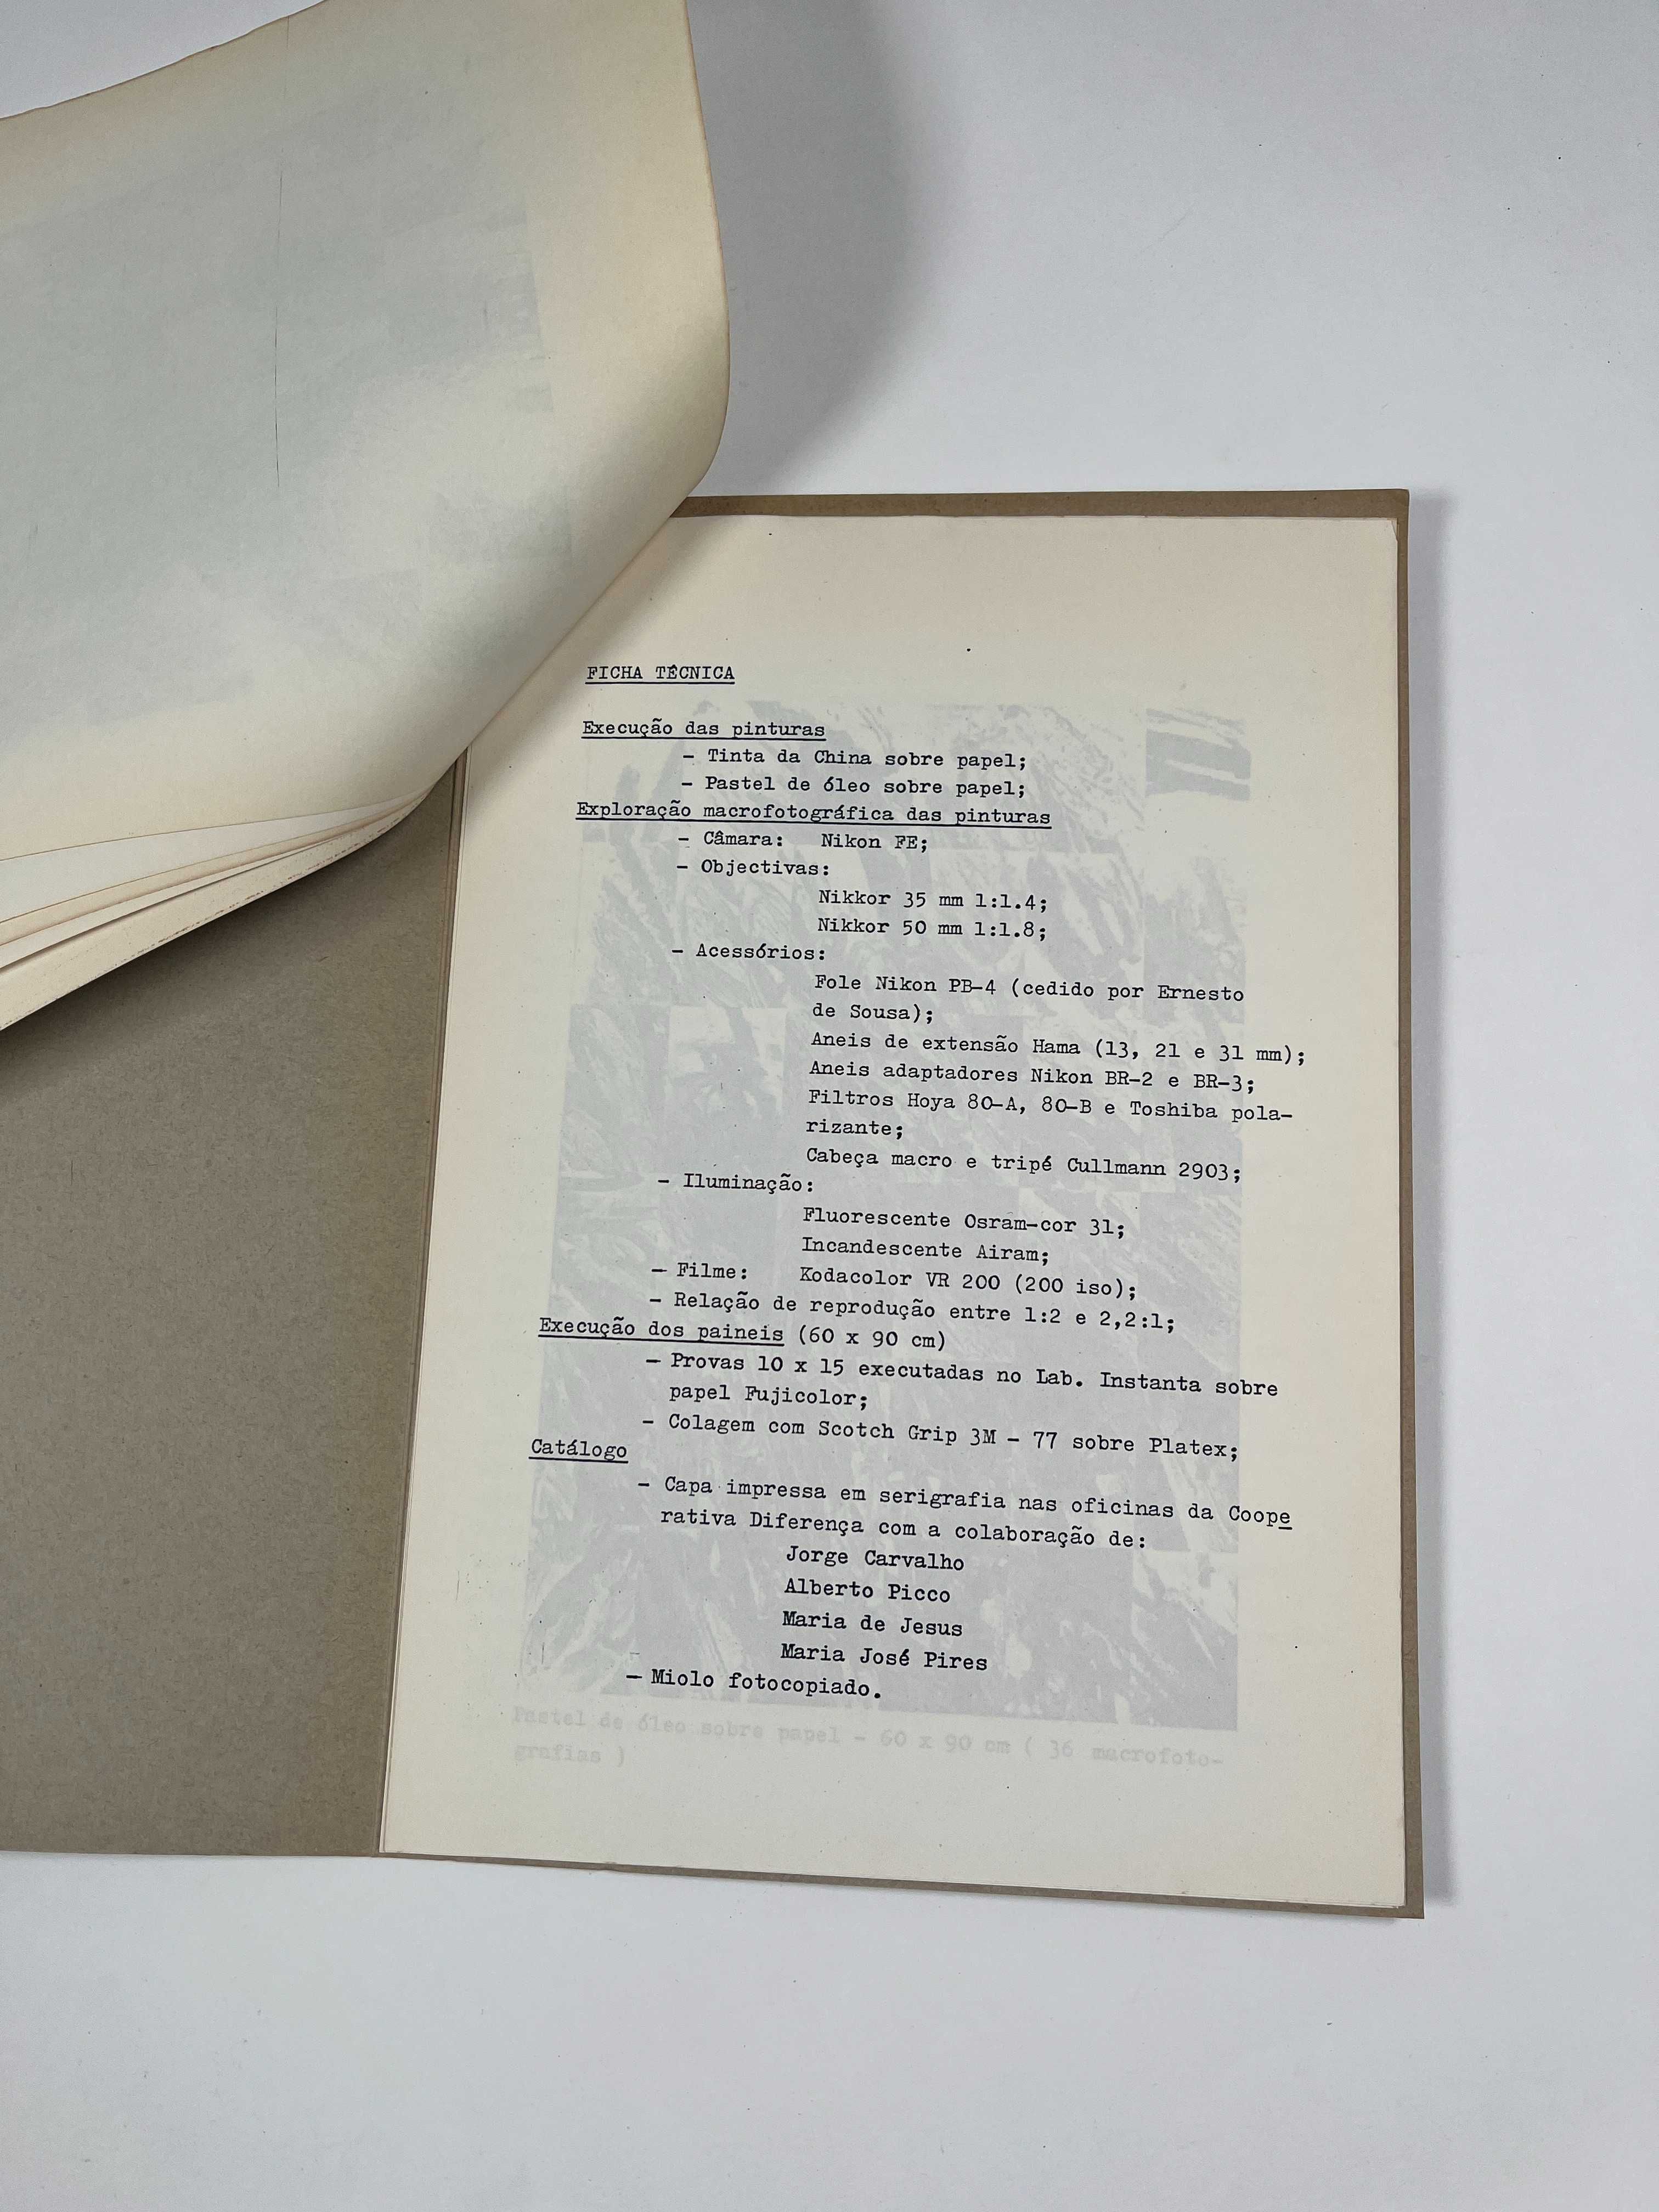 FICHA TÊCNICA
Execução das pinturas
- Tinta da China sobre papel;
- Pastel de óleo sobre papel;
Exploração macrofotográfica das pinturas
- Câmara: Nikon FE;
- Objectivas:
Nikkor 35 mm 1:1.4;
Nikkor 50 mm 1:1.8;
- Acessórios:
Fole Nikon PB-4 (cedido por Ernesto
de Sousa);
Aneis de extensão Hama (13, 21 e 31 mm);
Aneis adaptadores Nikon BR-2 e BR-3;
Filtros Hoya 80-A, 80-B e Toshiba pola-
rizante;
Cabeça macro e tripé Cullmann 2903;
- Iluminação:
Fluorescente Osram-cor 31;
Incandescente Airam;
- Filme: Kodacolor VR 200 (200 iso);
- Relação de reprodução entre 1:2 e 2,2:1;
Execução dos paineis (60 x 90 cm)
- Provas 10 x 15 executadas no Lab. Instanta sobre
papel Fujicolor;
- Colagem com Scotch Grip 3M - 77 sobre Platex;
Catálogo
- Capa impressa em serigrafia nas oficinas da Coope
rativa Diferença com a colaboração de:
Jorge Carvalho
Alberto Picco
Maria de Jesus
Maria José Pires
- Miolo fotocopiado.
Pastel de óleo sobre papel - 60 x 90 cm ( 36 macrofoto-
grafias )